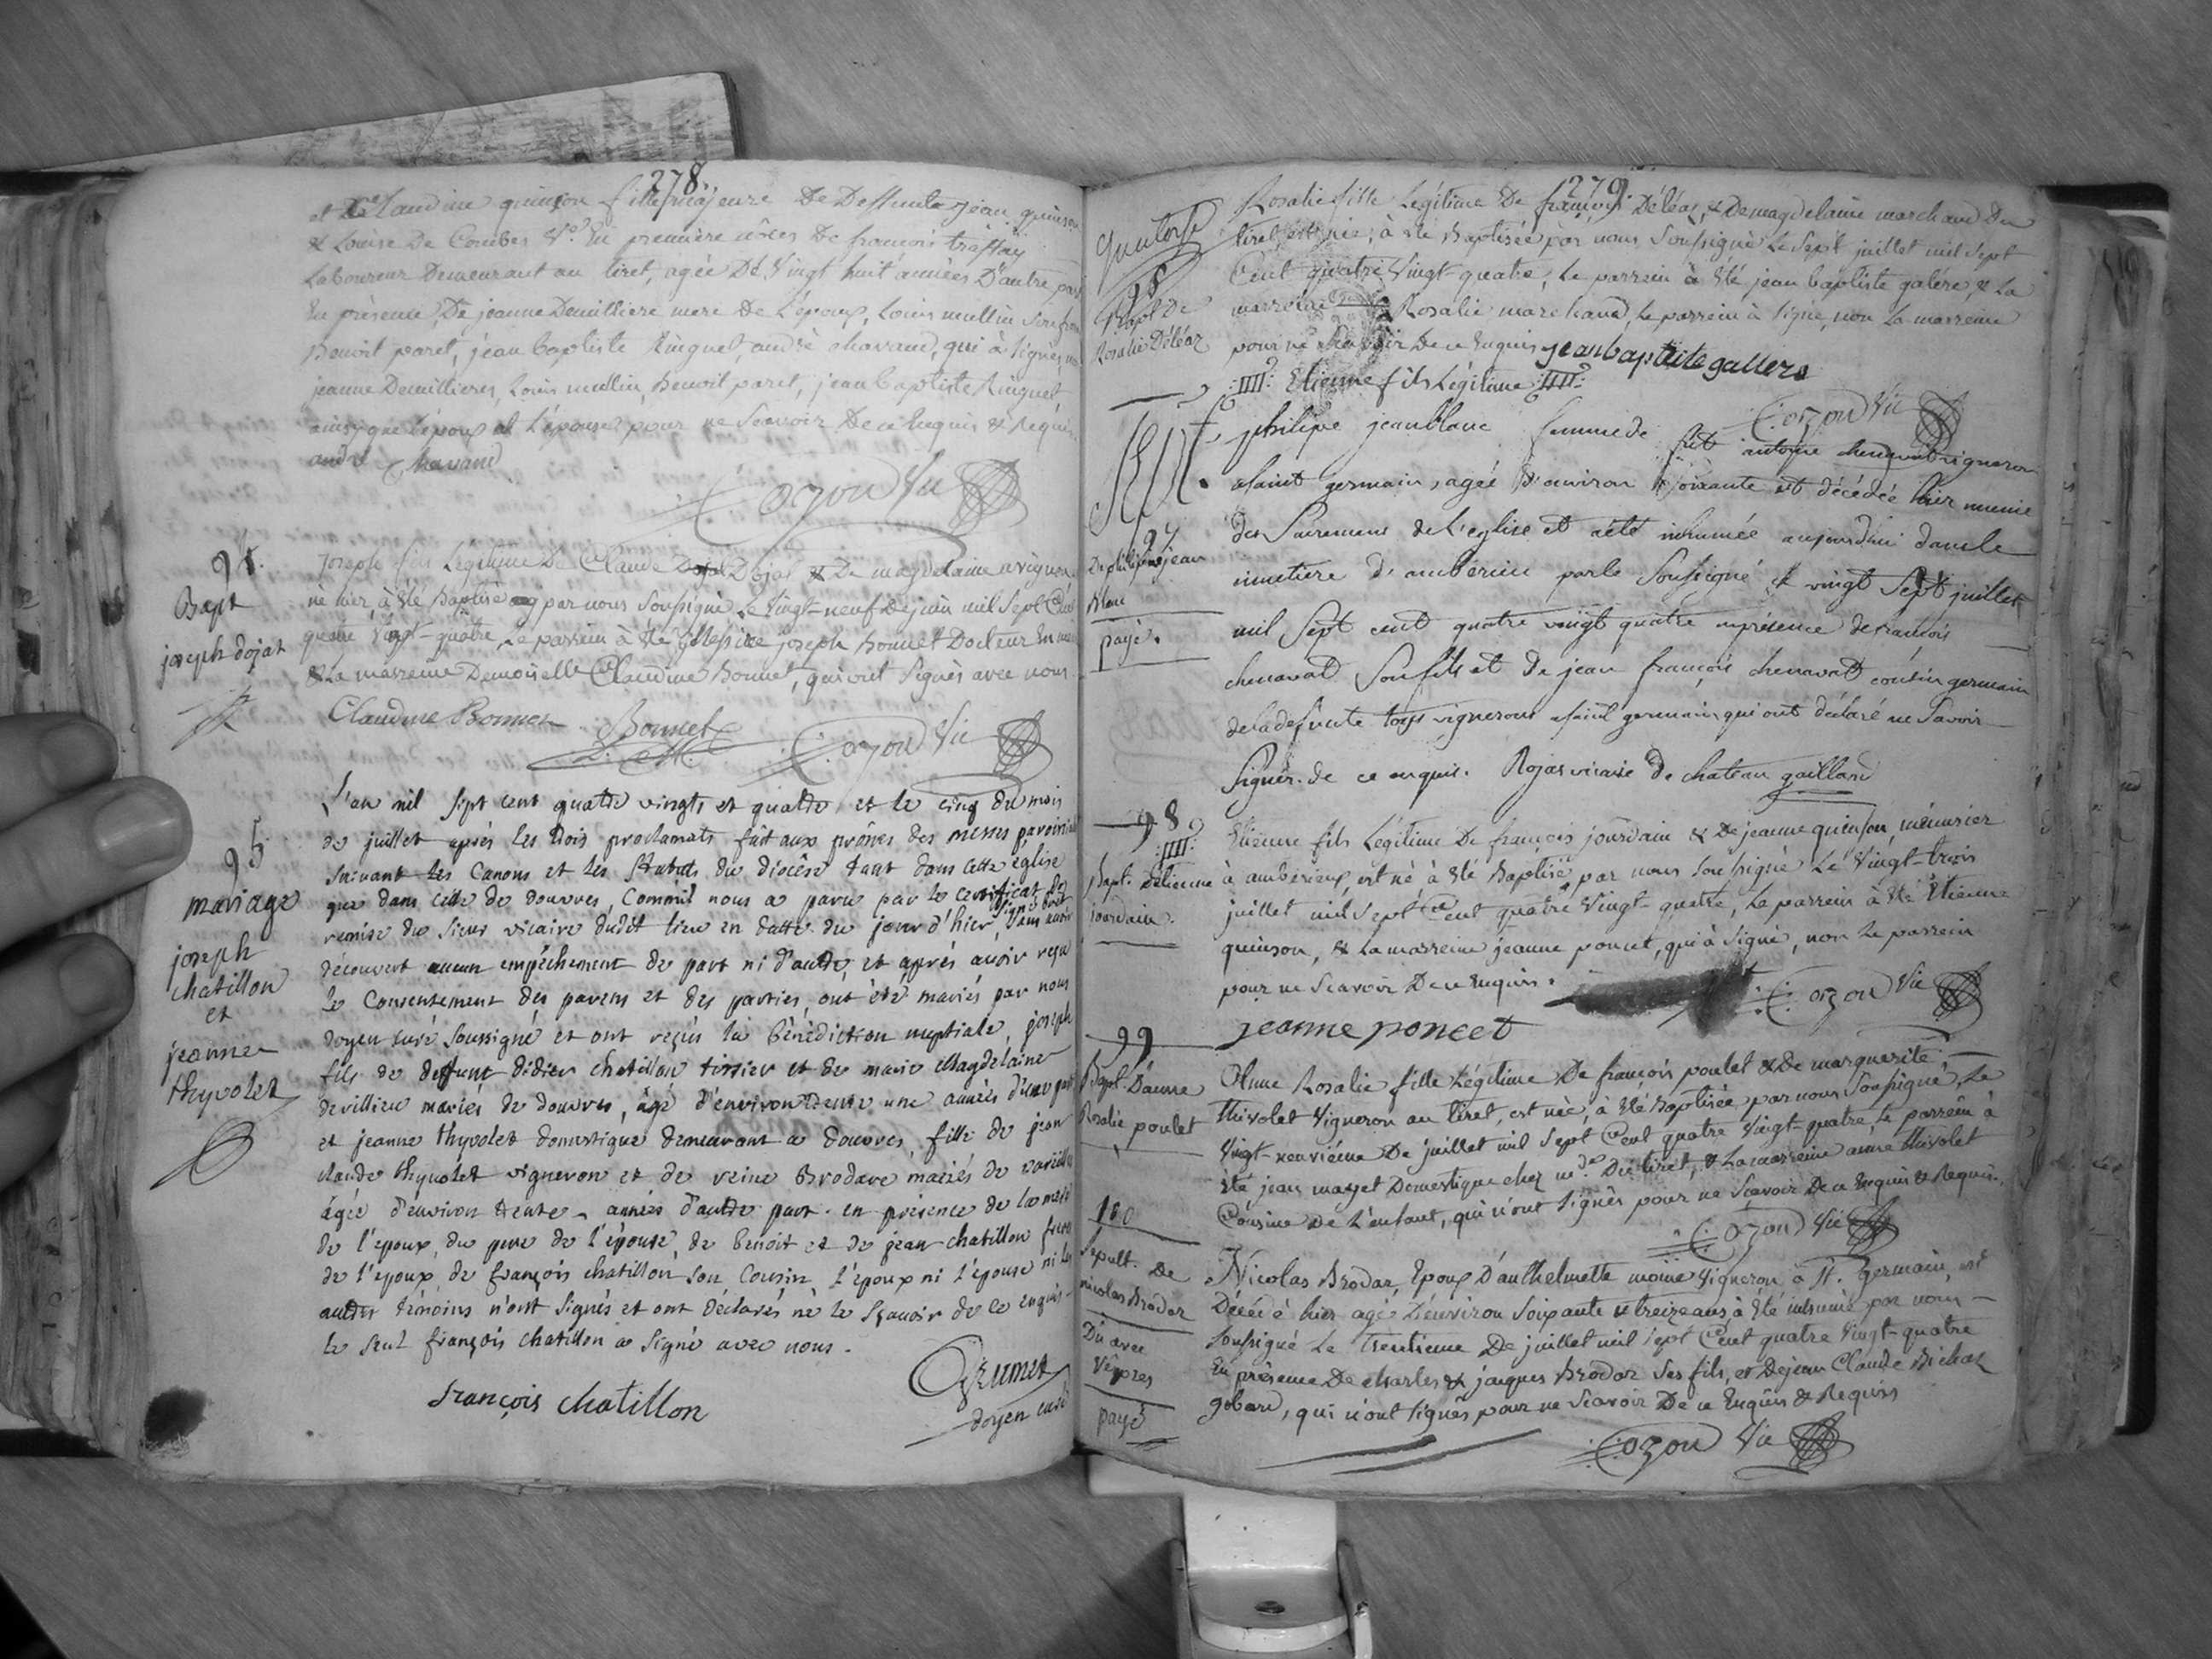 278
et Claudine quinson fille majeure De Deffunts jean quinson
& Louise De Combes Ve. En première nôces De francois traffay
Laboureur Demeurant au tiret, agée De Vingt huit années D'autre part
En présence De jeanne Demilliere mere De L'époux, Louis mullin
Benoit paret, jean baptiste Ringuet, andré chavand, qui à signé, non
jeanne Demilliere, Louis mullin, Benoit paret, jean baptiste Ringuet
ainsy que L'époux et L'épouse pour ne Scavoir De ce Enquis & Requis
andré Chavand
Cozon Vic
94.
Bapt
joseph dojat
joseph fils Légitime De Claude Dojat & De magdelaine avignon
né hier, à été Baptisé par nous Soussigné Le Vingt-neuf De juin mil Sept Cent
quatre Vingt-quatre Le parrein à été Messire joseph Bonnet Docteur En
& La marreine Demoiselle Claudine Bonnet, qui ont Signés avec nous
Claudine Bonnet Bonnet
D. M.
Cozon Vic
95
mariage
joseph
chatillon
et
jeanne
thyvolet
L'an mil sept cent quatre vingts et quatre et le cinq du mois
de juillet après les trois proclamats fait aux prônes des messes paroissiales
suivant les Canons et les Statuts du diocèse tant dans cette église
que dans celle de douvres, Comme il nous a paru par le certificat de
remise du sieur vicaire dudit lieu en datte du jour d'hier, signé bret sans avoir
découvert aucun empêchement de part ni d'autre, et après avoir reçu
le Consentement des parens et des parties, ont été mariés par nous
doyen curé soussigné et ont reçus la bénédiction nuptiale, joseph
fils de deffunt didier chatillon tissier et de marie Magdelaine
devillieu mariés de douvres, âgé d'environ trente une années d'une part
et jeanne thyvolet domestique demeurant a douvres, fille de jean
claude thyvolet vigneron et de reine Brodare mariés de vareilles
âgée d'environ trente années d'autre part. en présence de la mere
de l'époux, du pere de l'épouse, de benoit et de jean chatillon freres
de l'époux, de françois chatillon son Cousin, l'époux ni l'épouse ni les
autres témoins n'ont signés et ont déclarés ne le sçavoir de ce enquis
le seul françois chatillon a signé avec nous.
françois chatillon
Grumet
doyen curé
279
quatorse
98
Bapt De
Rosalie Déléaz
Rosalie fille Légitime De françois Déléaz, & De magdelaine marchand Du
tiret, est née, à été Baptisée par nous Soussigné Le Sept juillet mil Sept
Cent quatre Vingt-quatre, Le parrein à Été jean baptiste galére, & La
marreine Rosalie marchand, Le parrein à signé, non La marreine
pour ne Scavoir De ce Enquis jean baptiste gallere
Etienne fils Légitime
Cozon Vic
97
De philipe jean
blanc
payé.
philipe jeanblanc femme de fut antoine chenavat vigneron
a saint germain, agée d'environ soixante est décédée hier munie
des Sacremens de l'eglise et a été inhumée aujourd'hui dans le
cimetiere d'ambérieu par le Soussigné le vingt Sept juillet
mil Sept cent quatre vingt quatre en présence de françois
chenavat Son fils et de jean françois chenavat cousin germain
de la défunte tous vignerons a saint germain qui ont déclaré ne Savoir
Signer. de ce enquis. Rojat vicaire de chateau gaillard
98
Bapt. D'étienne
jourdain.
Etienne fils Légitime De françois jourdain & De jeanne quinson, ménusier
à amberieux, est né à été Baptisé par nous Soussigné Le Vingt-trois
juillet mil Sept Cent quatre Vingt-quatre, Le parrein à été Etienne
quinson, & La marreine jeanne poncet, qui à signé, non Le parrein
pour ne Scavoir De ce Enquis.
jeanne poncet
Cozon Vic
99
Bapt. D'anne
Rosalie poulet
Anne Rosalie fille Légitime De françois poulet & De marguerite
thivolet Vigneron au tiret, est née, à été Baptisée par nous Soussigné, Le
Vingt-neuviéme De juillet mil Sept Cent quatre Vingt-quatre, Le parrein à
été jean mayet Domestique chez mde. Du tiret, & La marreine anne thivolet
Cousine De L'enfant, qui n'ont signés pour ne Scavoir De ce Enquis & Requis.
Cozon Vic
100
Sepult. De
nicolas Brodar
Du avec
Vêpres
payé
Nicolas Brodar, Epoux D'anthelmette moine Vigneron à St. Germain, est
Décédé hier agé D'environ Soixante & treize ans, à été inhumé par nous
Soussigné Le Trentieme De juillet mil Sept Cent quatre Vingt-quatre
En présence De charles & jacques Brodar Ses fils, et De jean Claude Bichat
gobard, qui n'ont signés pour ne Scavoir De ce Enquis & Requis
Cozon Vic